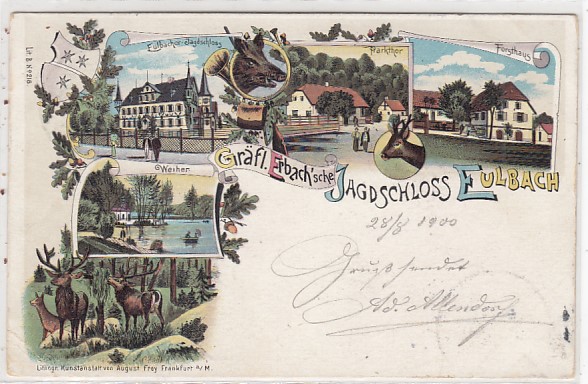 Lit. B. Nº 216
Eulbacher Jagdschloss
Parkthor
Forsthaus
Weiher
Gräfl. Erbach'sche JAGDSCHLOSS EULBACH
28/8 1900
Gruß sendet
Ad. Allendorf
Lithogr. Kunstanstalt von August Frey Frankfurt a/M.